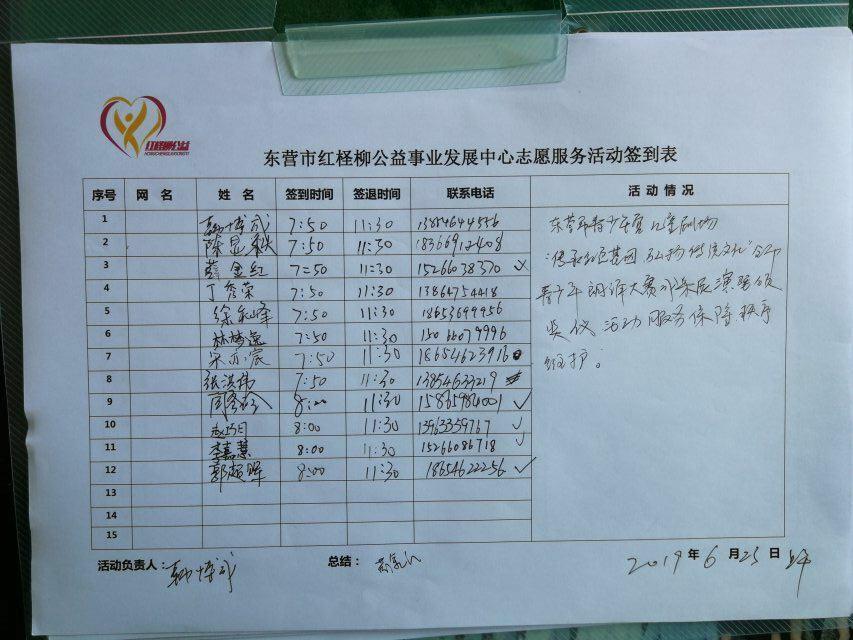 红柽柳公益
东营市红柽柳公益事业发展中心志愿服务活动签到表
序号 网 名 姓 名 签到时间 签退时间 联系电话 活 动 情 况
1 7:50 11:30 13854644556
2 陈显秋 7:50 11:30 18366912408
3 金红 7:50 11:30 15266038370 ✓
4 丁秀荣 7:50 11:30 13864754418
5 徐 峰 7:50 11:30 18653699956
6 林 7:50 11:30 15066079996
7 宋亦宸 7:50 11:30 18654623916
8 张洪伟 7:50 11:30 13854633219
9 8:00 11:30 15865984001 ✓
10 赵巧月 8:00 11:30 13963359767 ✓
11 李嘉慧 8:00 11:30 15266086718 ✓
12 郭 晖 8:00 11:30 18654622256 ✓
13
14
15
东营市青少年宫儿童剧场
"传承红色基因 弘扬传统文化"
青少年朗诵大赛 展演暨颁
奖仪 活动服务保障 秩序
维护。
活动负责人： 总结：
2019 年 6 月 23 日